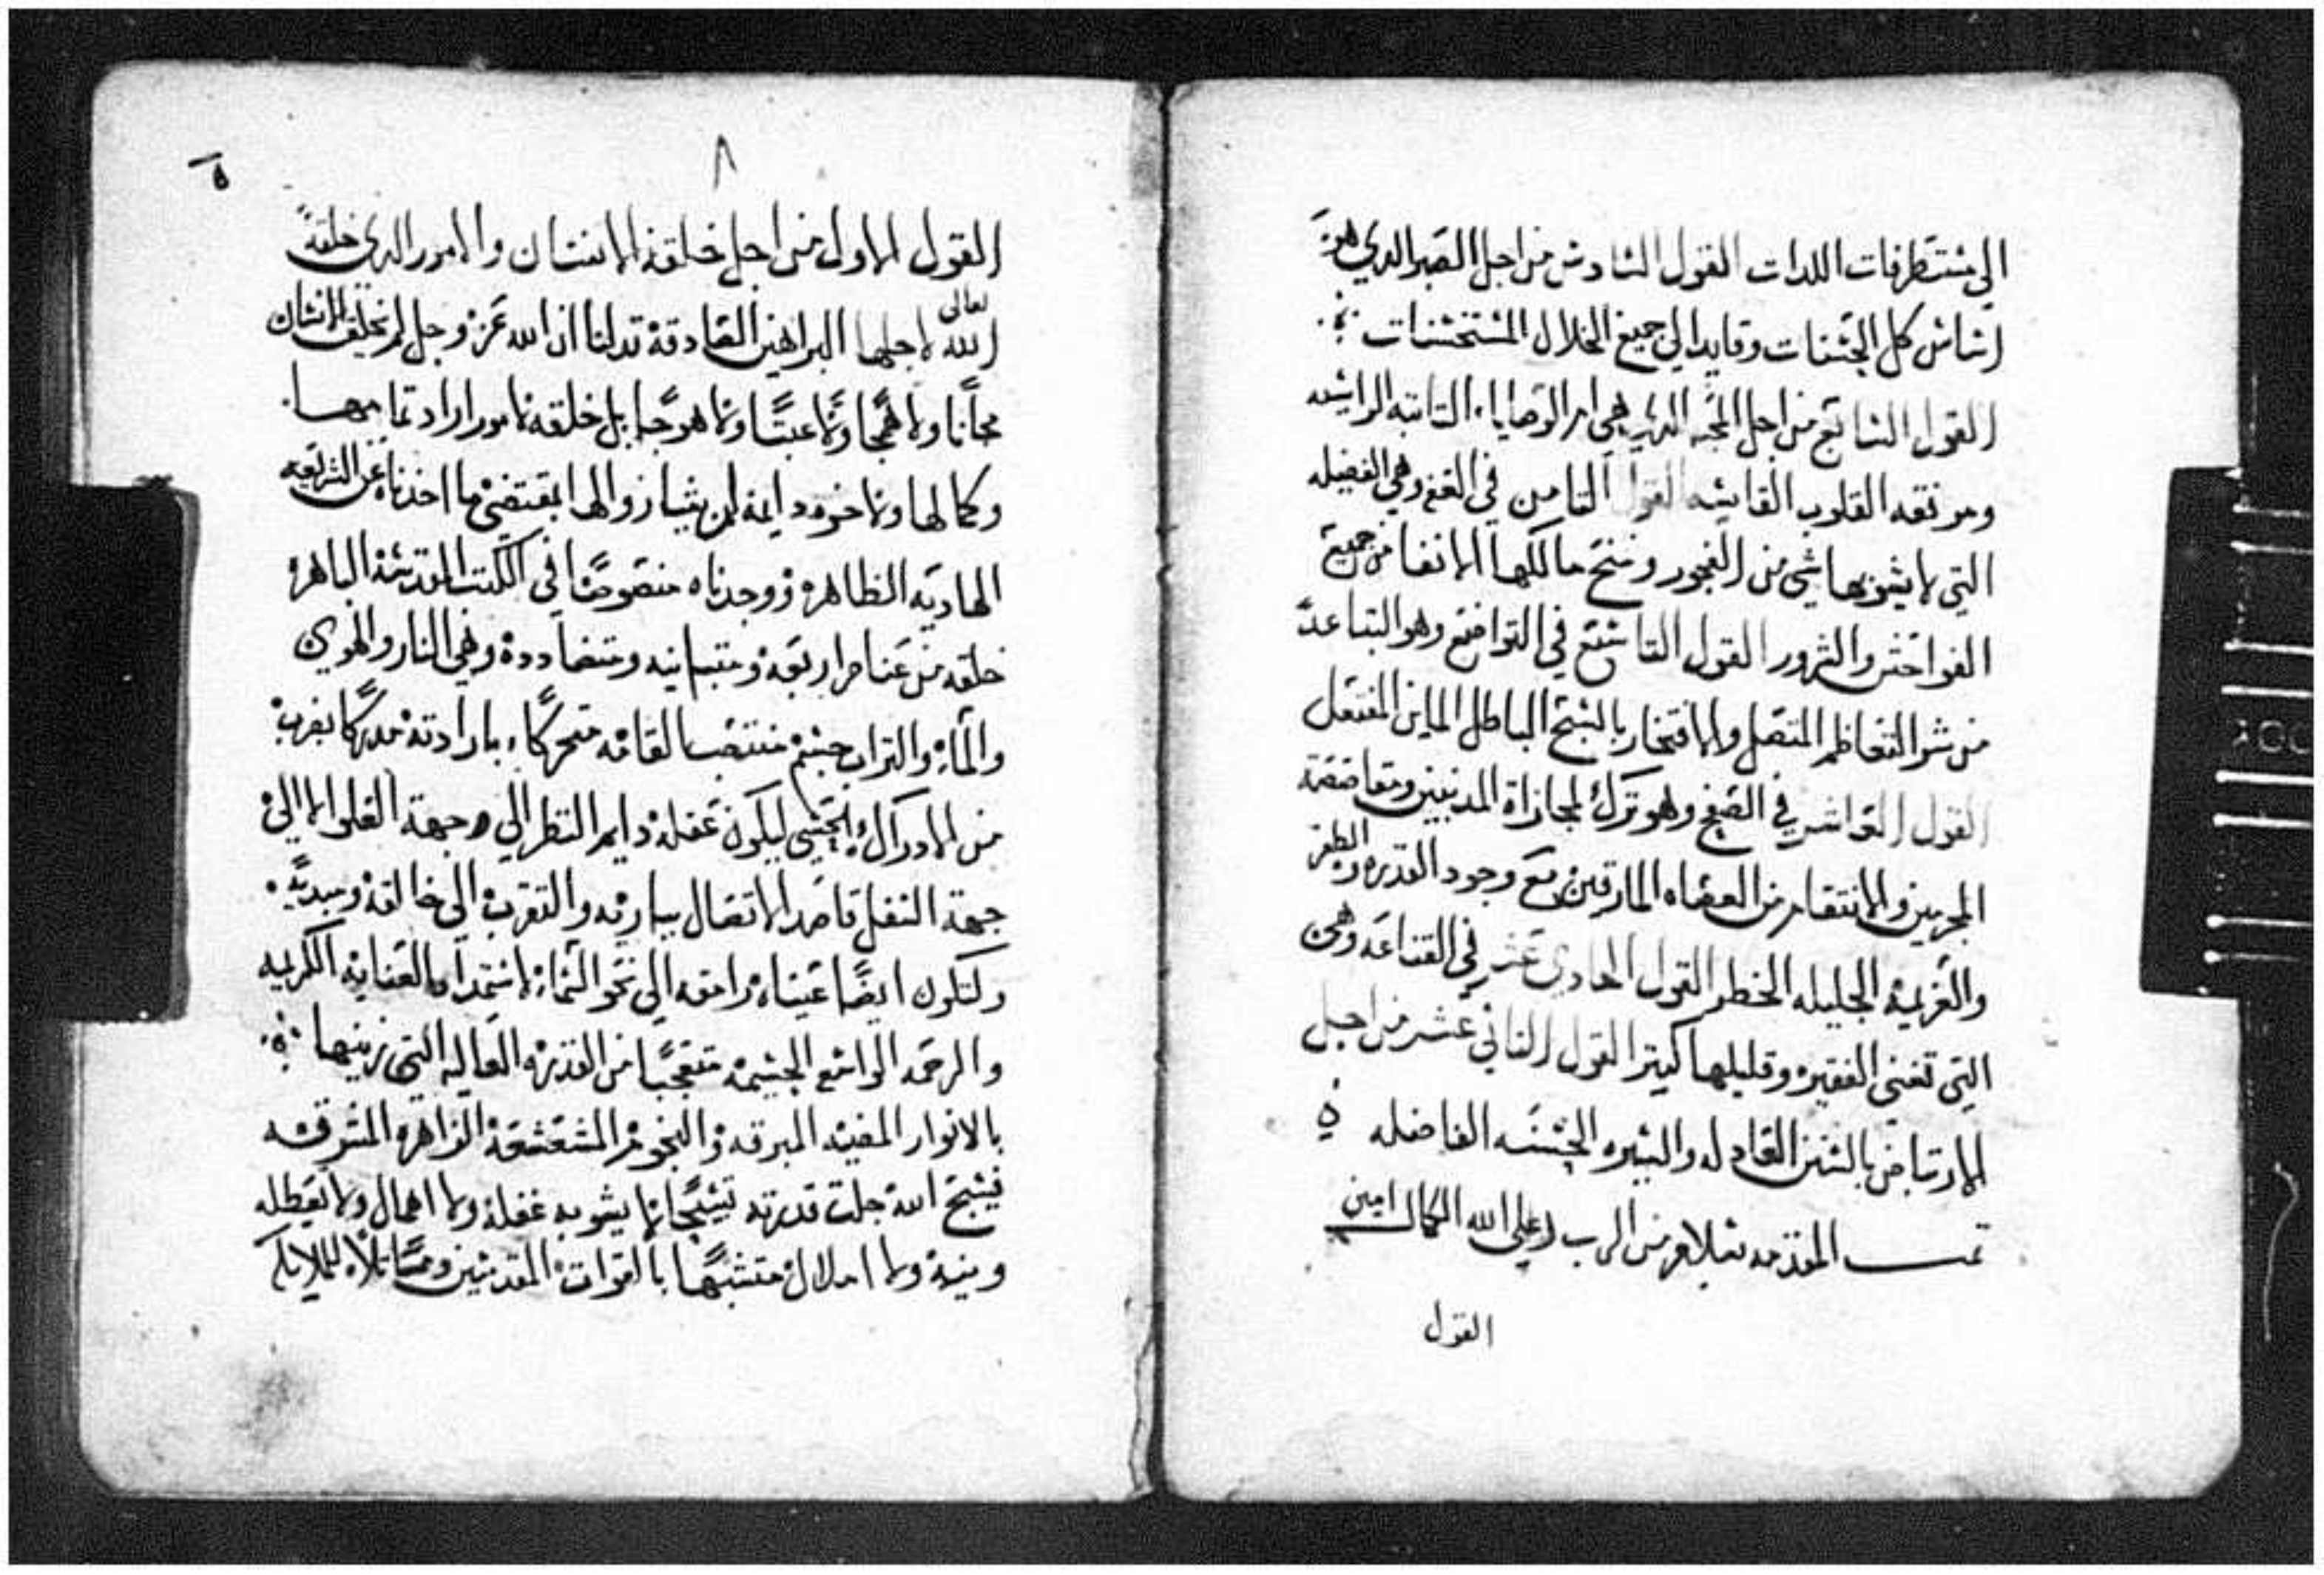 الي مستطرفات اللدات القول السادس من اجل الصبر الدي هو
اساس كل الحسنات وقايدا الي جميع الخلال المستحسنات
القول السابع من اجل المحبه التي هي ام الوصايا التابته الراسيه
القلوب القاسيه القول التامن في العفه وهي الفضيله
التي لا يشوبها شي من الفجور وتمنح مالكها الانفا من جميع
الفواحش والشرور القول التاسع في التواضع وهو التباعد
من شر التعاظم المتصل والافتخار بالسبح الباطل الماين المفتعل
القول العاشر في الصفح وهو ترك مجازاة المدنبين ومعاصصة
المجرمين والانتقام من العصاه المارقين مع وجود القدره والظفر
والعزيمة الجليله الخطر القول الحادي عشر في القناعه وهي
التي تغني الفقير وقليلها كتير القول التاني عشر من اجل
الارتياض بالسنن العادله والسيره الحسنه الفاضله
تمت المقدمه بسلام من الرب اعلي الله الكمال امين
القول
٨
٥
القول الاول من اجل خلقة الانسان والامور الدي خلقه
الله تعالى لاجلها البراهين الصادقة تدلنا ان الله عز وجل لم يخلق الانسان
مجانا ولا همجا ولا عبتا ولا هوجا بل خلقه لامور اراد تمامها
وكمالها ولاخره دايمة لن يشا زوالها بمقتضي ما اخدناه عن الشريعه
الهاديه الظاهرة ووجدناه منصوصا في الكتب المقدسة الباهرة
خلقه من عناصر اربعة ومتباينه ومتضاددة وهي النار والهوي
والماء والتراب جسم منتصب القامه متحركا بارادته مدركا بضرب
من الادراك الحسي ليكون عقله دايم النظر الي جهة العلو لا الي
جهة السفل قاصد الاتصال بباريه والتقرب الي خالقه ومبديه
ولتكون ايضا عيناه رامقه الي نحو السماء لاستمداد العنايه الكريمه
والرحمه الواسع الجسيمه متعجبا من القدره العاليه التي زينها
بالانوار المضيه المبرقه والنجوم المشعشعة الزاهره المشرقه
فيسبح الله جلت قدرته تسبيحا لا يشوبه غفلة ولا اهمال ولا تعطله
وينية ولا املال متشبها بالقوات المقدسين وممتاتلا للملايكه